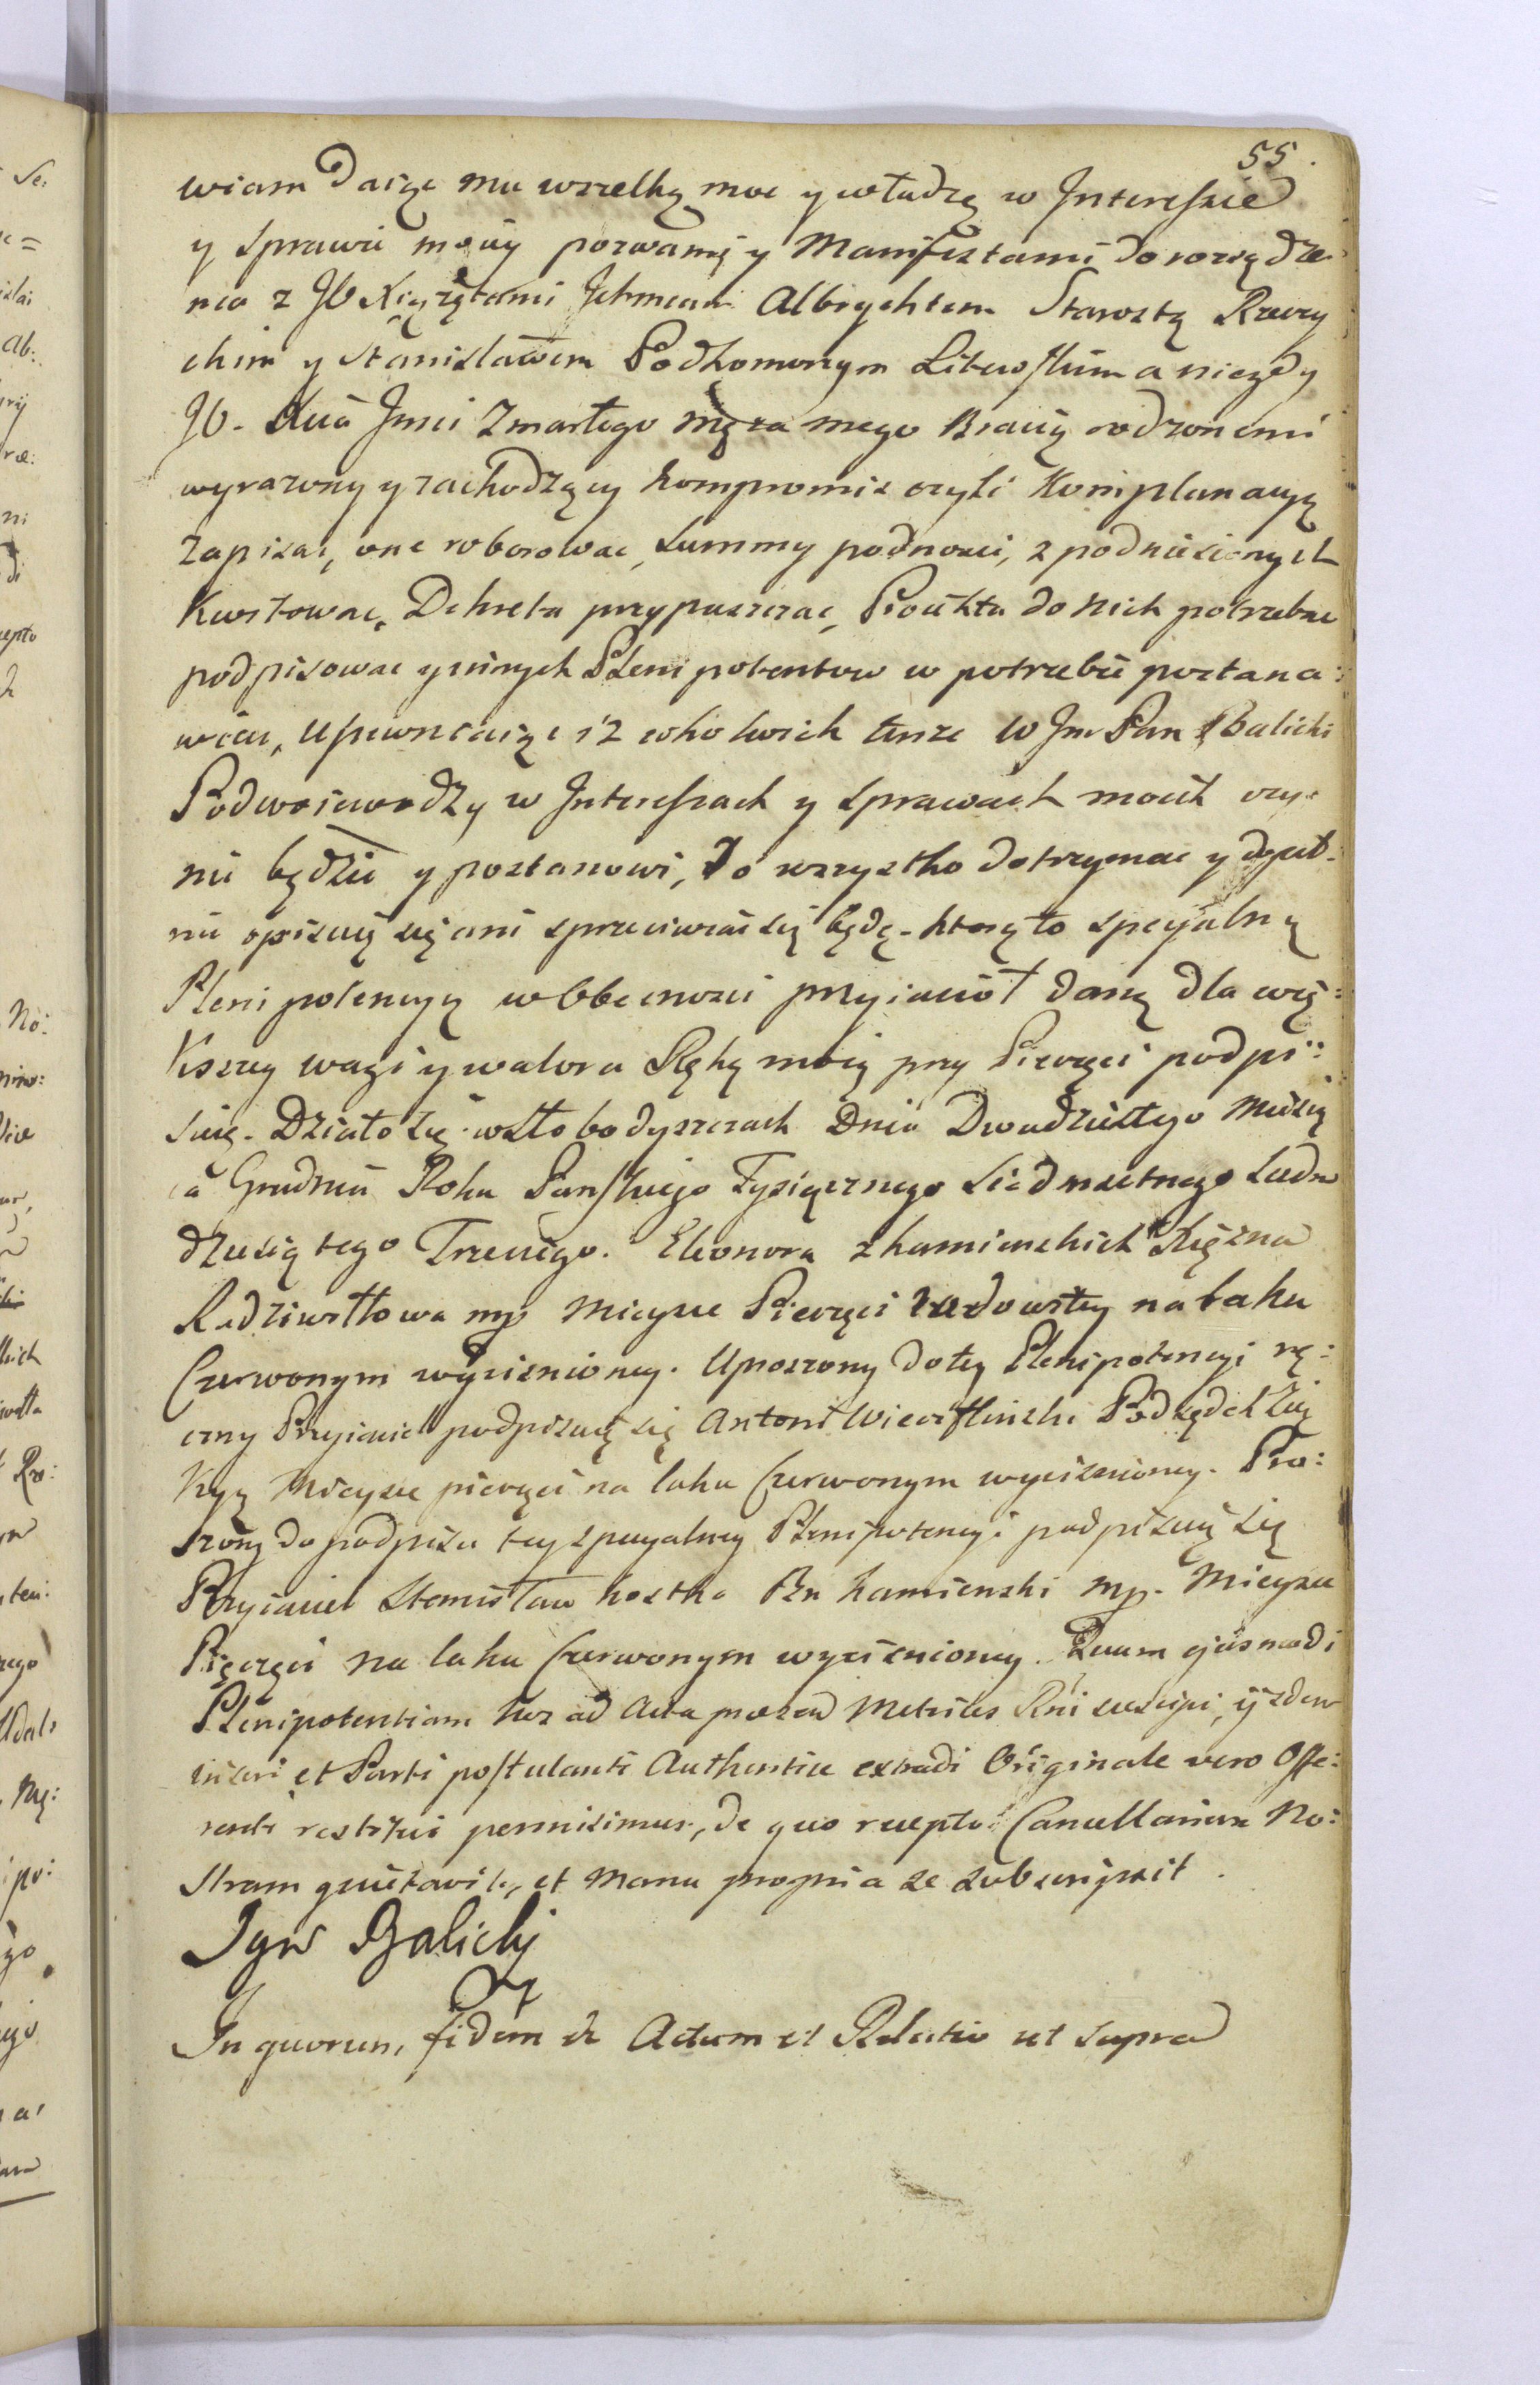 55.
wiam daiąc mu wszelką moc y władzę w Interessie
y sprawie moiey pozwami y Manifestami do rozsądze-
nia z JO Xiążętami Ichmciami Albrychtem Starostą Rzeczy
ckim y Stanisławem Podkomorzym Litewskim a niegdy
JO. Xcia Jmci Zmarłego męża mego Bracią rodzonemi
wyrażony y zachodzący kompromis czyli Komplanacyą
zapisać, one roborować, summy podnosić, z podniesionych
Kwitować, Dekreta przypuszczać, Punkta do nich potrzebne
podpisować y innych Plenipotentow w potrzebie postana:
wiać, Upewniaiąc iż cokolwiek tenże W Jm Pan Balicki
Podwoiewodzy w Interessach y sprawach moich czy:
nić będzie y postanowi, To wszystko dotrzymać y dopeł-
nić opisuię się ani sprzeciwiać się będę. którą to specyalną
Plenipotencyą w Obecności przyiacioł daną dla wię:
Kszey wagi y waloru Ręką moią przy Pieczęci podpi:
suię. Działo się w Słobodyszczach Dnia Dwudziestego Miesią
ca Grudnia Roku Pańskiego Tysiącznego Siedmsetnego Siedm
dziesiątego Trzeciego. Eleonora z Kamienskich Xiężna
Radziwiłłowa mp Mieysce Pieczęci na laku
Czerwonym wyciśnioney. Uproszony do tey Plenipotencyi rę:
czny Przyiaciel podpisuię się Antoni Podsędek
Mieysce pieczęci na laku Czerwonym wyciśnioney. Pro:
szony do podpisu tey specyalney Plenipotencyi podpisuię się
Przyiaciel Stanisław Kostka Kamienski mp. Mieysce
Pieczęci na laku Czerwonym wyciśnioney. Quam ejusmodi
Plenipotentiam Nos ad Acta Metrices Rni suscipi, ijsdem
inseri et Parti postulanti Authentice extradi Originale vero Offe:
renti restitui permisimus, de quo recepto Cancellariam No:
stram quietavit, et Manu propria se subscripsit.
Ign Balicky
In quorum, fidem &c Actum et Relatio ut supra